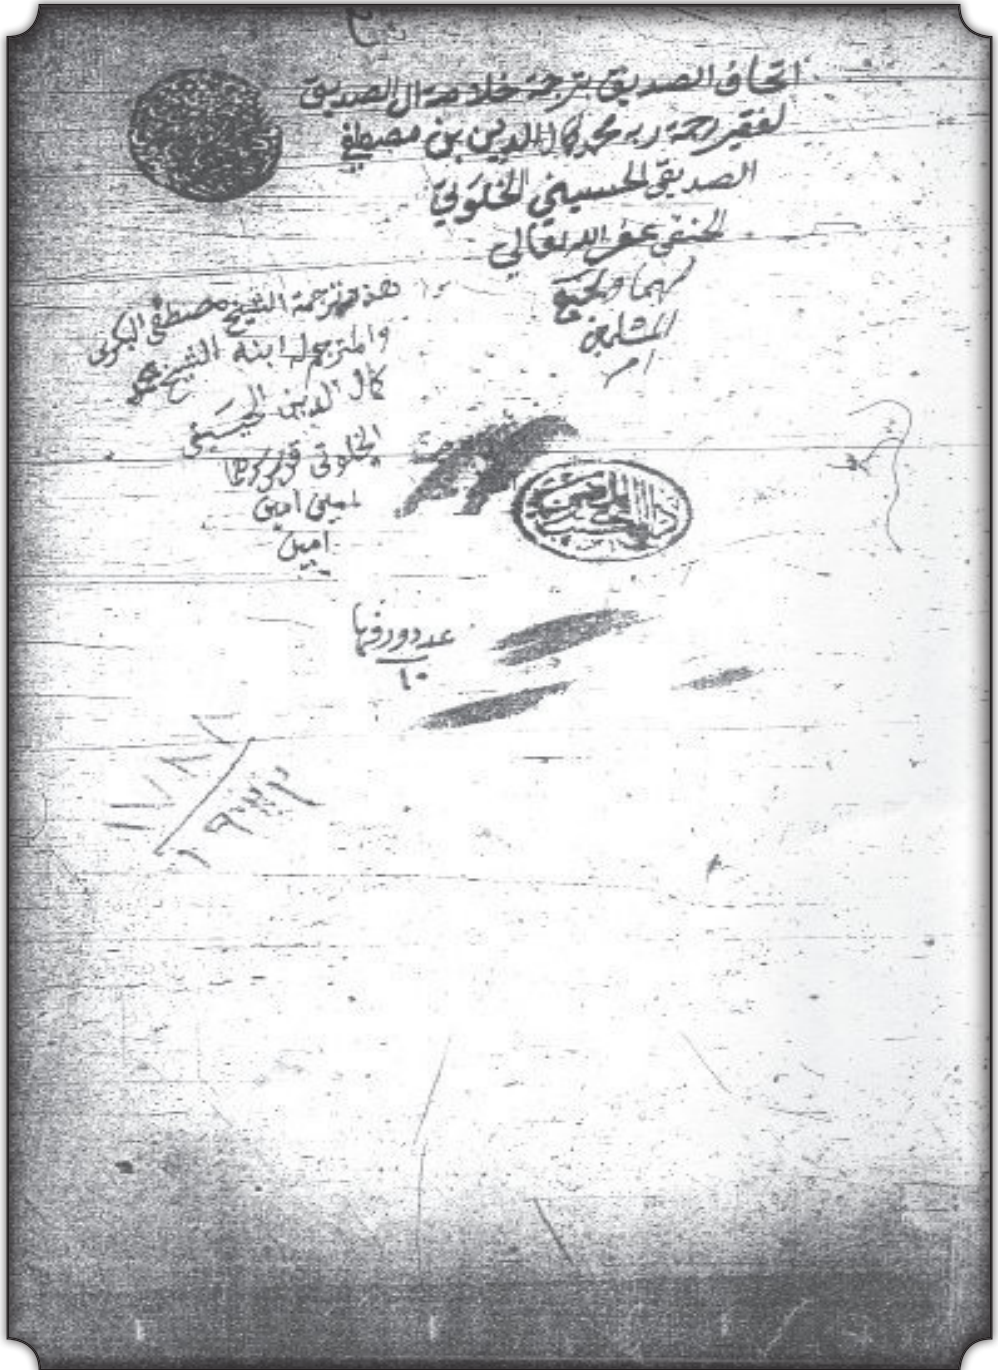 اتحاف الصديق بترجمة خلاصة ال الصديق
لفقير رحمة ربه محمد كمال الدين بن مصطفى
الصديقي الحسيني الخلوتي
الحنفي عفى الله تعالى
لهما ولجميع
المسلمين
ام
هذه ترجمة الشيخ مصطفى البكري
والمترجم له ابنه الشيخ محمد
كمال الدين الحسيني
الخلوتي
امين
امين
دار الكتب المصرية
عدد ورقها
١٠